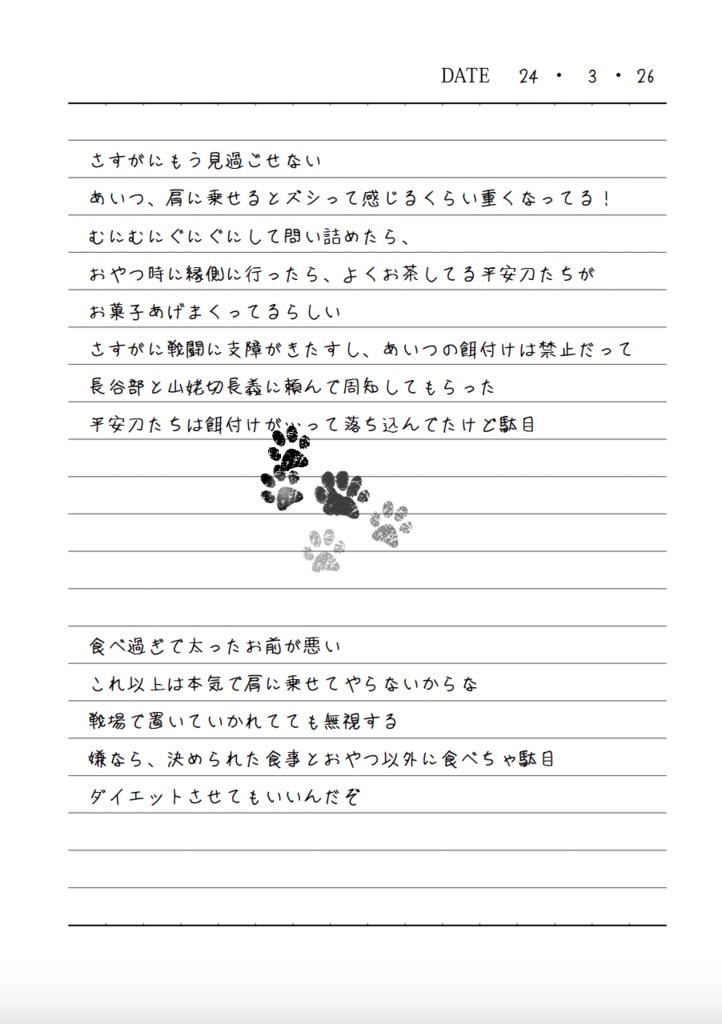 DATE 24 ・ 3 ・ 26
さすがにもう見過ごせない
あいつ、肩に乗せるとズシって感じるくらい重くなってる!
むにむにぐにぐにして問い詰めたら、
おやつ時に縁側に行ったら、よくお茶してる平安刀たちが
お菓子あげまくってるらしい
さすがに戦闘に支障がきたすし、あいつの餌付けは禁止だって
長谷部と山姥切長義に頼んで周知してもらった
平安刀たちは餌付けが…って落ち込んでたけど駄目
食べ過ぎで太ったお前が悪い
これ以上は本気で肩に乗せてやらないからな
戦場で置いていかれてても無視する
嫌なら、決められた食事とおやつ以外に食べちゃ駄目
ダイエットさせてもいいんだぞ